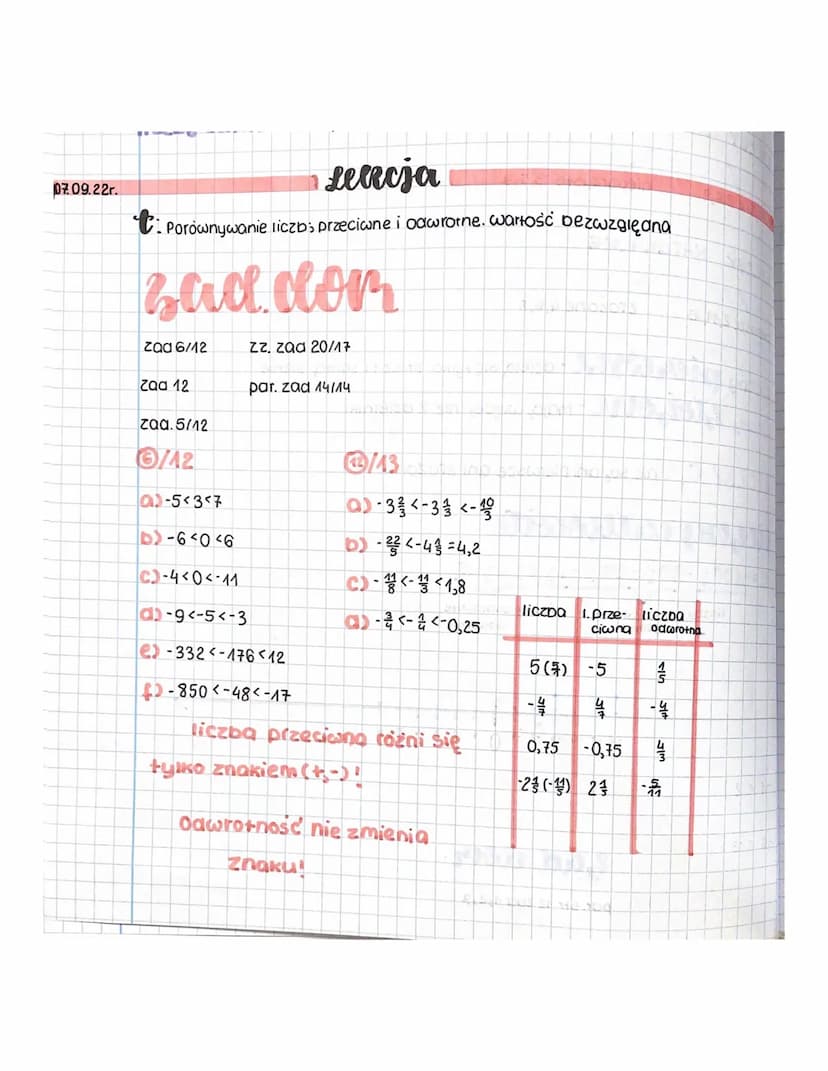 lekcja
07.09.22r.
t: Porównywanie liczb; przeciwne i odwrotne. wartość bezwzględna
zad. dom
zad 6/12 zz. zad 20/17
zad 12 par. zad 14/14
zad. 5/12
6/12
a) -5<3<7
b) -6<0<6
c) -4<0<-11
d) -9<-5<-3
e) -332<-176<12
f) -850<-48<-17
12/13
a) -3 2/3 < -3 1/3 < -10/3
b) -22/5 < -4 1/5 = 4,2
c) -11/8 < -11/3 < 1,8
d) -3/4 < -1/4 < -0,25
liczba l. prze- liczba
ciwna odwrotna
5 (5/1) -5 1/5
-4/7 4/7 -4/7
0,75 -0,75 4/3
-2 1/5 (-11/5) 2 1/5 -5/11
liczba przeciwna różni się
tylko znakiem (+,-)!
Odwrotność nie zmienia
znaku!